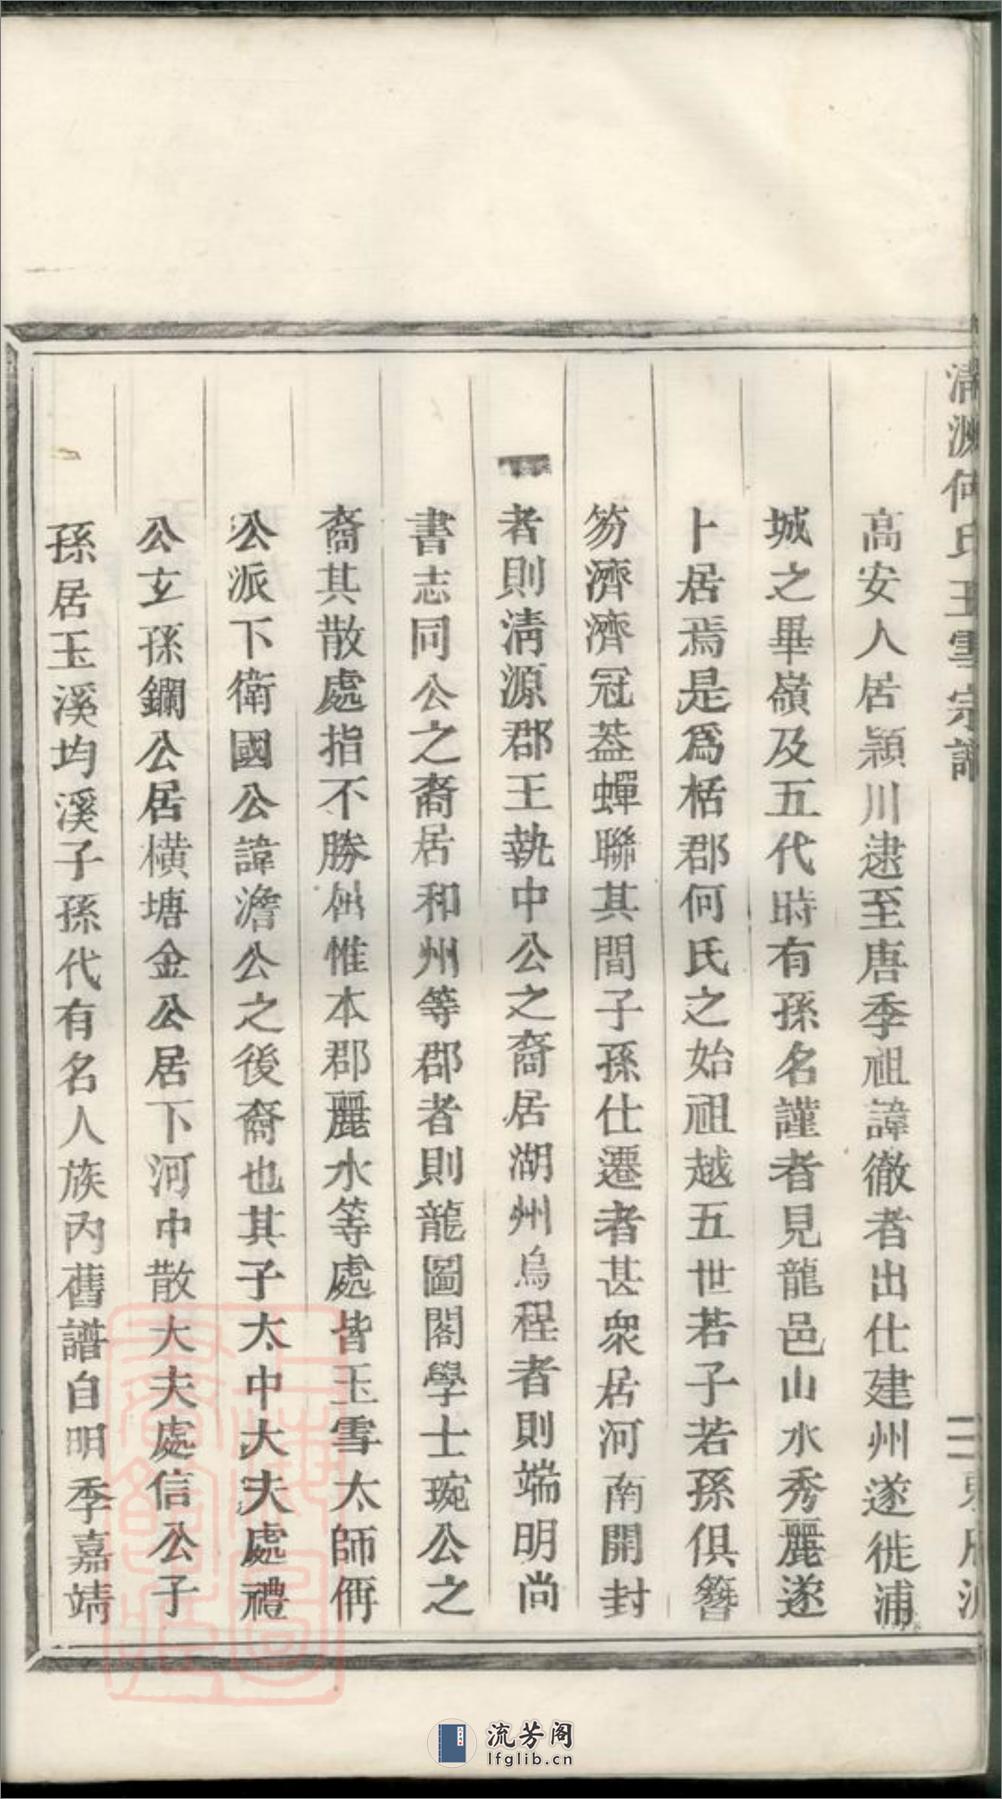 清源何氏玉雪宗譜
高安人居潁川逮至唐季祖諱徹者出仕建州遂徙浦
城之畢嶺及五代時有孫名謹者見龍邑山水秀麗遂
卜居焉是爲栝郡何氏之始祖越五世若子若孫俱簪
笏濟濟冠葢蟬聯其間子孫仕遷者甚衆居河南開封
者則清源郡王執中公之裔居湖州烏程者則端明尚
書志同公之裔居和州等郡者則龍圖閣學士琬公之
裔其散處指不勝屈惟本郡麗水等處皆玉雪太師侢
公派下衛國公諱澹公之後裔也其子太中大夫處禮
公玄孫鑭公居橫塘金公居下河中散大夫處信公子
孫居玉溪均溪子孫代有名人族內舊譜自明季嘉靖
上海圖書館藏
流芳阁
lfglib.cn